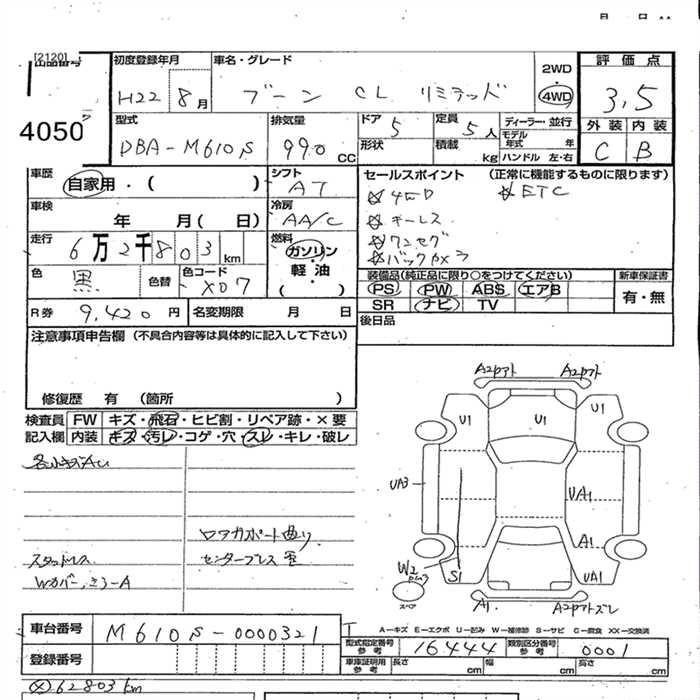 [2120]
4050
初度登録年月 車名・グレード 評価点
H22 8月 ブーン CL リミテッド 2WD 4WD 3.5
型式 排気量 ドア 5 定員 5人 ディーラー・並行 外装 内装
DBA-M610S 990 CC 形状 積載 kg モデル年式 年 ハンドル 左・右 C B
車歴 シフト セールスポイント (正常に機能するものに限ります)
自家用・( ) AT 4WD ETC
車検 冷房 キーレス
年 月( 日) AA/C ワンセグ
走行 燃料 バックカメラ
6万2千803km ガソリン・軽油・( )
色 色替 色コード 装備品(純正品に限り○をつけてください) 新車保証書
黒 X07 PS PW ABS エアB 有・無
SR ナビ TV
R券 9,420円 名変期限 月 日 後日品
注意事項申告欄 (不具合内容等は具体的に記入して下さい)
修復歴 有 (箇所 )
検査員 FW キズ・飛石・ヒビ割・リペア跡・×要
記入欄 内装 キズ・汚レ・コゲ・穴・スレ・キレ・破レ
A2 A2
U1 U1 U1
UA3 UA1
A1
W2
S1 UA1
スペア
A1. A2
ロアサポート曲り
スタッドレス
Wカバー、ミラーA
車台番号 M610S-0000321
A-キズ E-エクボ U-凹み W-補修跡 S-サビ C-腐食 XX-交換済
型式指定番号 参考 16444 類別区分番号 参考 0001
登録番号 車庫証明用 参考 長さ cm 幅 cm 高さ cm
62803km